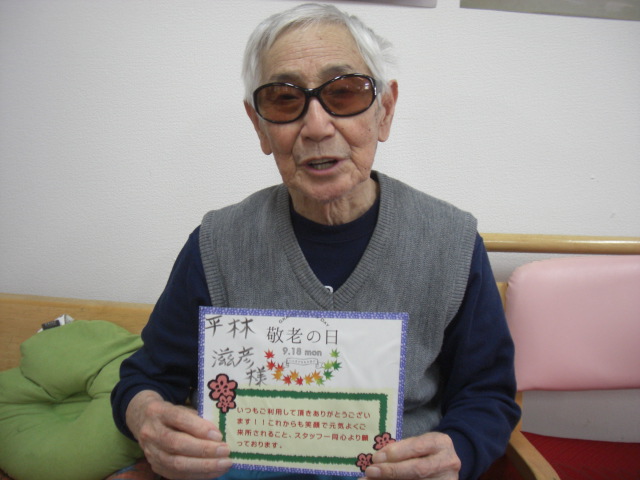 平林
滋彦
様
敬老の日
9.18 mon
いつもご利用して頂きありがとうござい
ます！！これからも笑顔で元気よくご
来所されること、スタッフ一同心より願
っております。